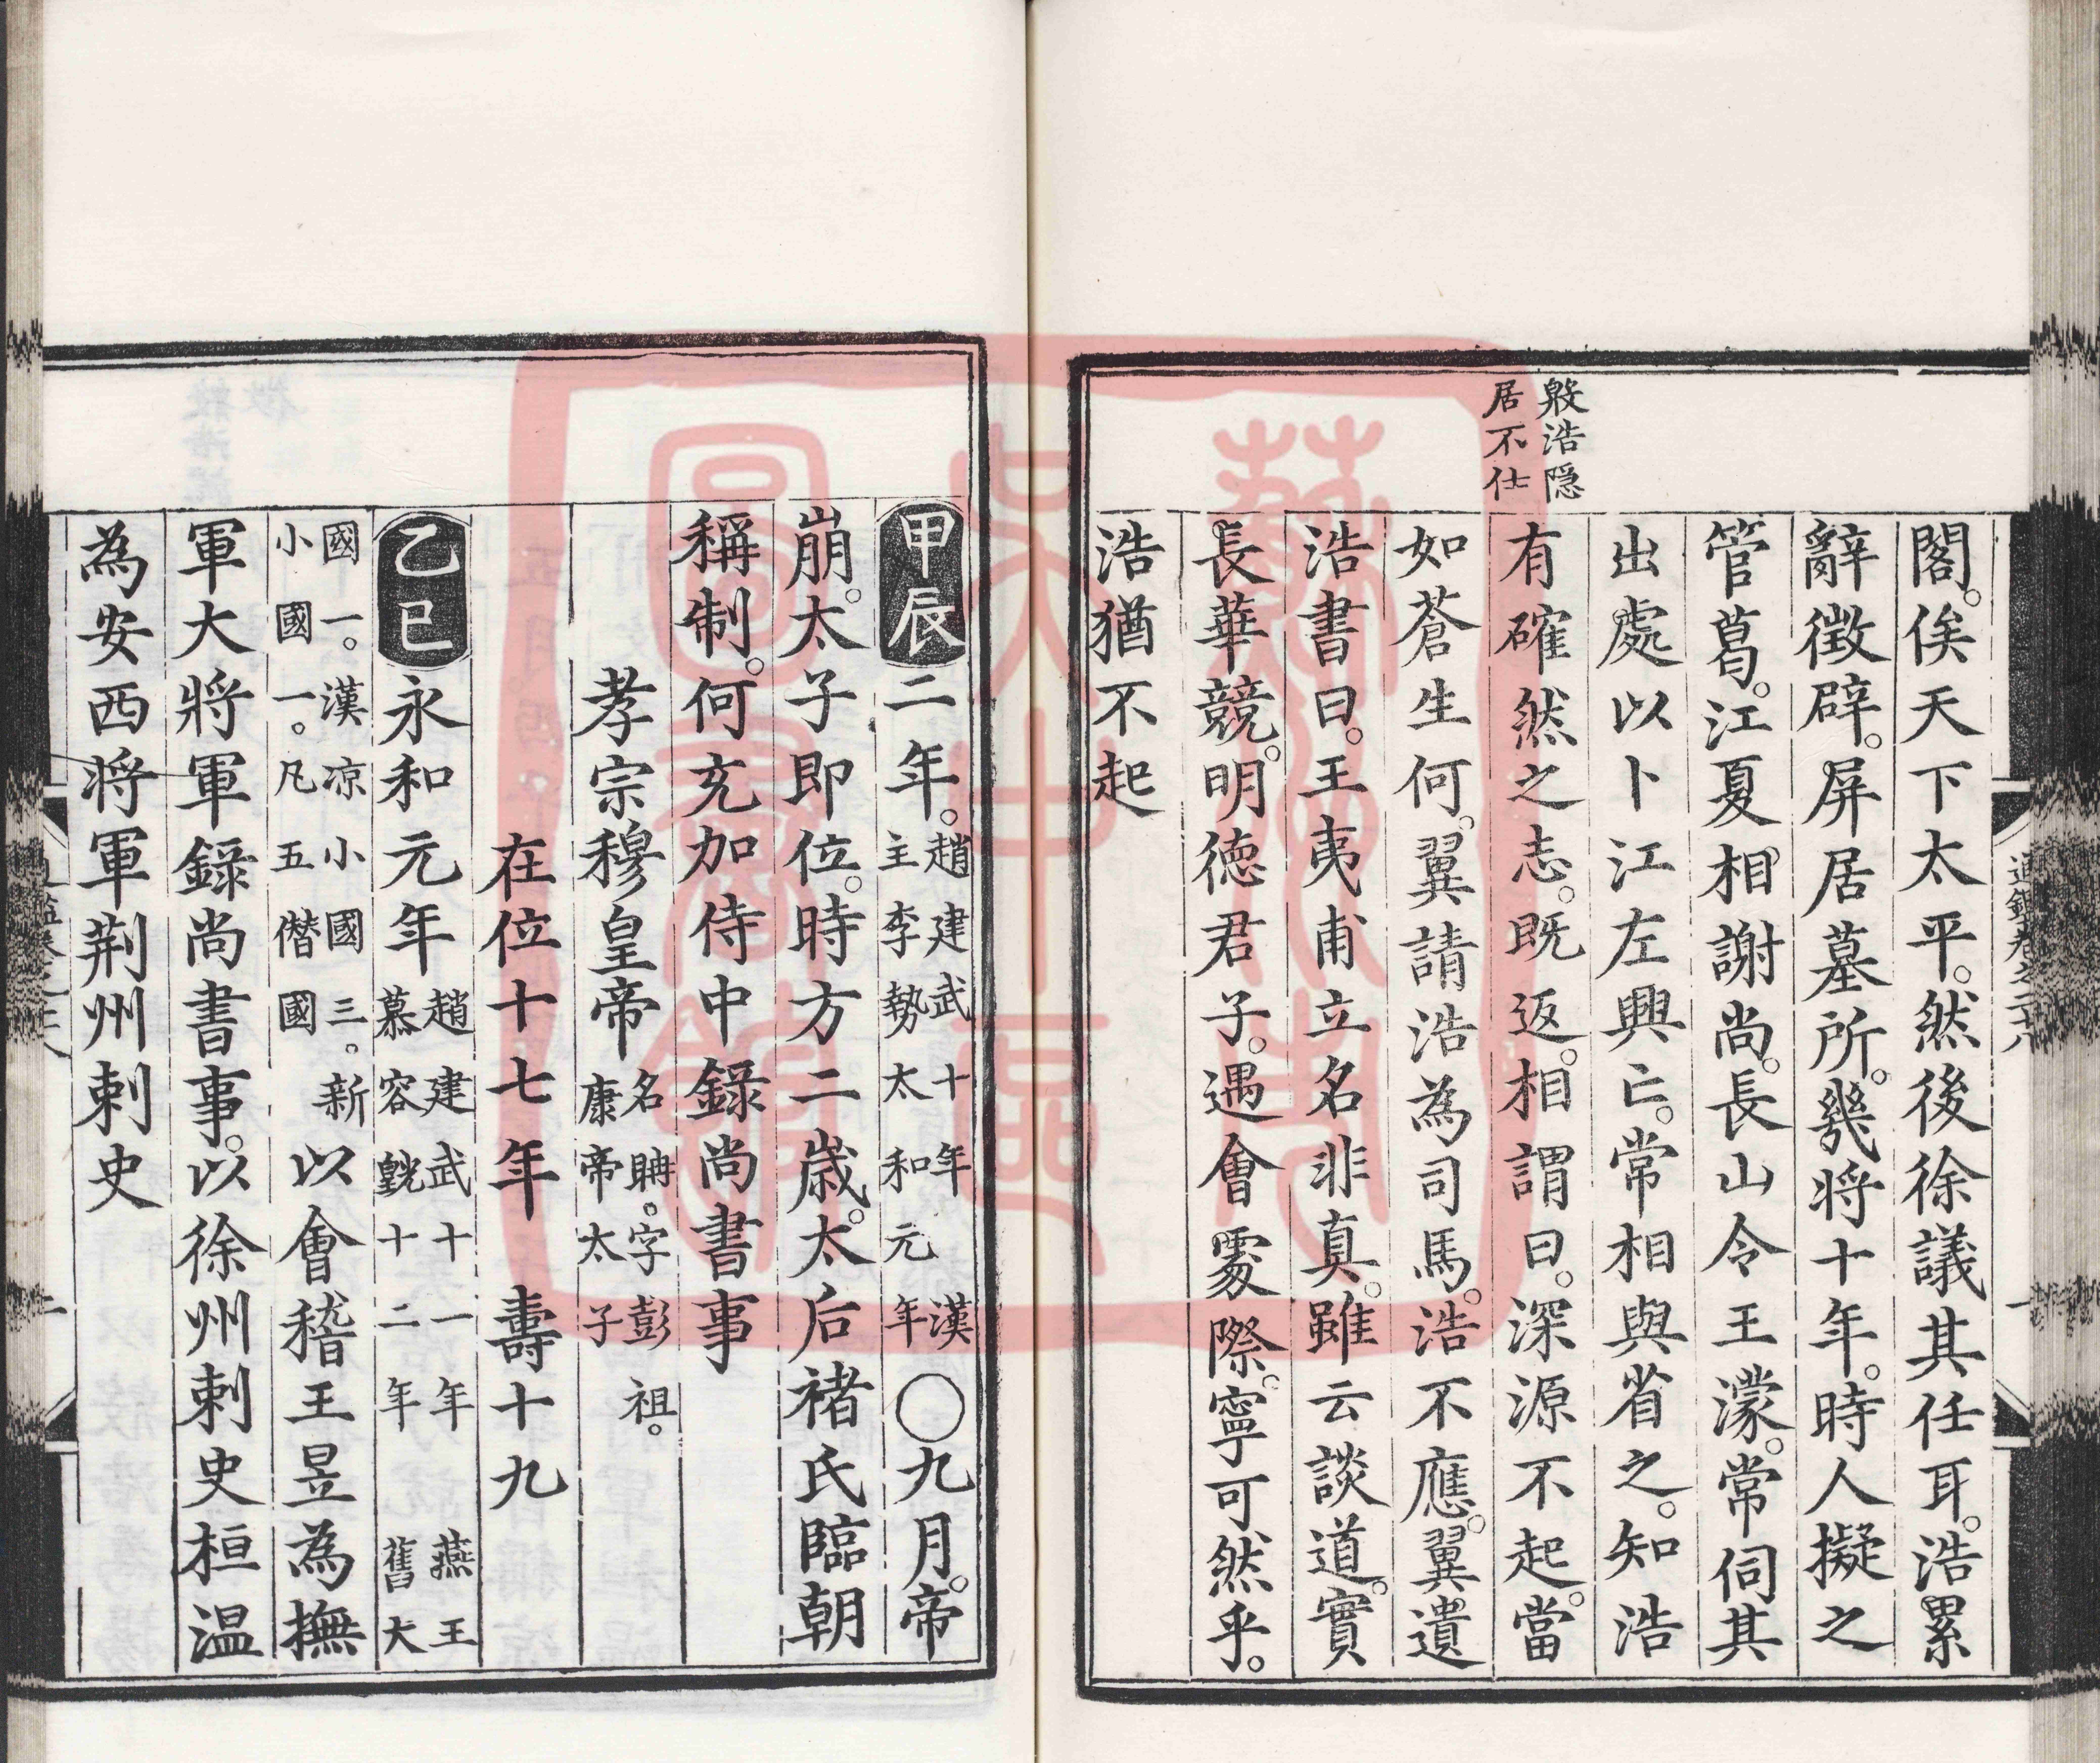 殷浩隠
居不仕
閣。俟天下太平。然後徐議其任耳。浩累
辭徵辟。屏居墓所。幾将十年。時人擬之
管葛。江夏相謝尚。長山令王濛。常伺其
出處以卜江左興亡。常相與省之。知浩
有確然之志。既返。相謂曰。深源不起。當
如蒼生何。翼請浩為司馬。浩不應。翼遺
浩書曰。王夷甫立名非真。雖云談道。實
長華競。明徳君子。遇會處際。寧可然乎。
浩猶不起
甲辰二年。趙建武十年漢主李勢太和元年〇九月。帝
崩。太子即位。時方二歳。太后褚氏臨朝
稱制。何充加侍中錄尚書事
孝宗穆皇帝名聃。字彭祖。康帝太子
在位十七年 壽十九
乙巳永和元年趙建武十一年燕王慕容皝十二年舊大
國一。漢凉小國三。新小國一。凡五僭國以會稽王昱為撫
軍大將軍錄尚書事。以徐州刺史桓温
為安西将軍荆州刺史